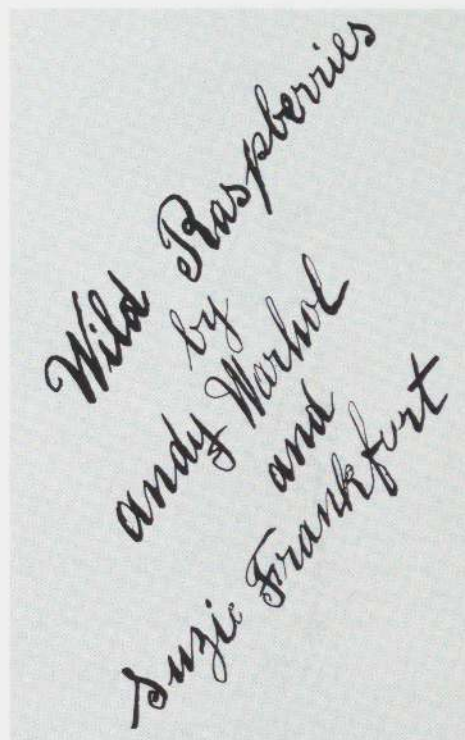 Wild Raspberries
by
andy Warhol
and
suzie Frankfurt